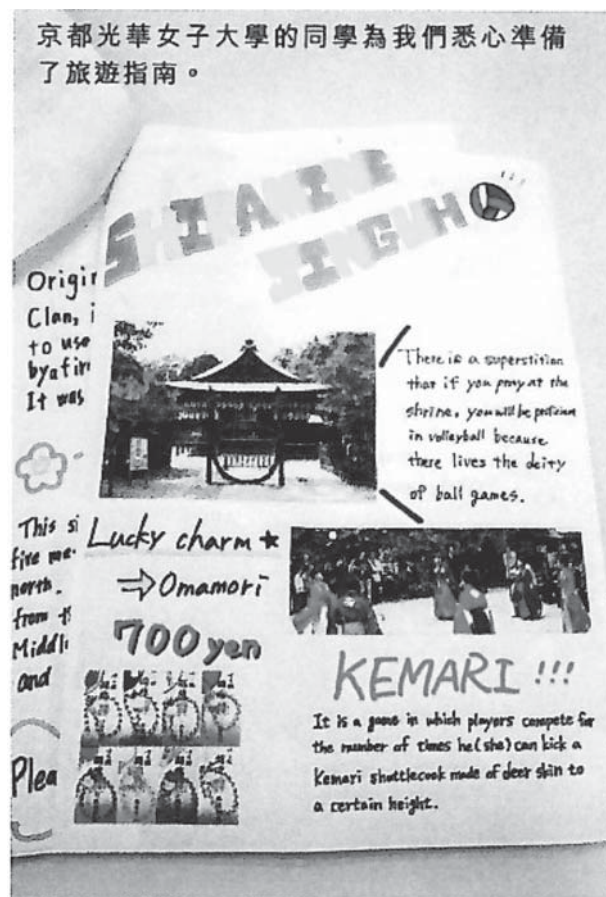 京都光華女子大學的同學為我們悉心準備
了旅遊指南。
SHIRAMINE
JINGUH
Origin
Clan, i
to use
by a fire
It was
There is a superstition
that if you pray at the
shrine, you will be proficien
in volleyball because
there lives the deity
of ball games.
This si
fire me
north.
from t
Middl
and
Plea
Lucky charm ★
⇒ Omamori
700 yen
KEMARI !!!
It is a game in which players compete for
the number of times he (she) can kick a
Kemari shuttlecook made of deer skin to
a certain height.